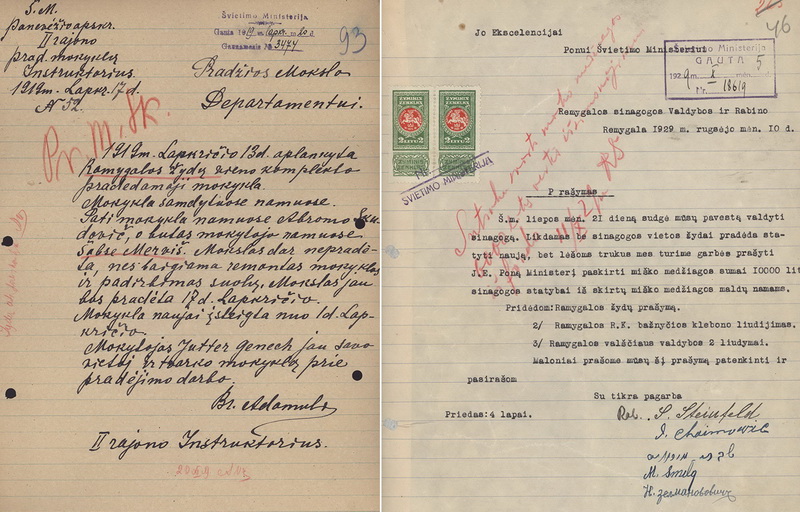 Š. M.
Panevėžio apskr.
II rajono
prad. mokyklų
Instruktorius.
1919 m. Lapkr. 17 d.
N 52.
Švietimo Ministerija
Gauta 1919 m. lapkr. 20 d.
Gaunamasis № 3474
93
Pradžios Mokslo
Departamentui.
Pr. M. sk.
1919 m. Lapkričio 13 d. aplankyta
Ramygalos Žydų vieno komplekto
pradedamoji mokykla.
Mokykla samdytuose namuose.
Pati mokykla namuose Abromo
o butas mokytojo namuose
Šabse Merviš. Mokslas dar nepradė-
ta, nes baigiama remontas mokyklos
ir padirbimas suolų, Mokslas jau
bus pradėta 17 d. Lapkričio.
Mokykla naujai įsteigta nuo 1 d. Lap-
kričio.
Mokytojas Jutter Genech jau savo
vietoj ir tvarko mokyklą prie
pradėjimo darbo.
Br. Adamulo
II rajono Instruktorius.
46
Jo Ekscelencijai
Ponui Švietimo Ministeriui
Švietimo Ministerija
GAUTA 5
1929 m. X mėn.
Nr. 18619
Remygalos sinagogos Valdybos ir Rabino
Remygala 1929 m. rugsėjo mėn. 10 d.
2 LITU 2
2 LITU 2
ŠVIETIMO MINISTERIJA
Prašymas
Š.m. liepos mėn. 21 dieną sudgė mūsų pavestą valdyti
sinagogą. Likdamas be sinagogos vietos žydai pradėda sta-
tyti naują, bet lėšoms trukus mes turime garbės prašyti
J.E. Poną Ministerį paskirti miško medžiagos sumai 10000 lit
sinagogos statybai iš skirtų miško medžiagos maldų namams.
Pridėdom: Ramygalos žydų prašymą.
2/ Ramygalos R.K. bažnyčios klebono liudijimas.
3/ Ramygalos valsčiaus valdybos 2 liudymai.
Maloniai prašome mūsų šį prašymą patenkinti ir
pasirašom
Su tikra pagarba
Priedas: 4 lapai.
Rab. S. Steinfeld
M. Smilg